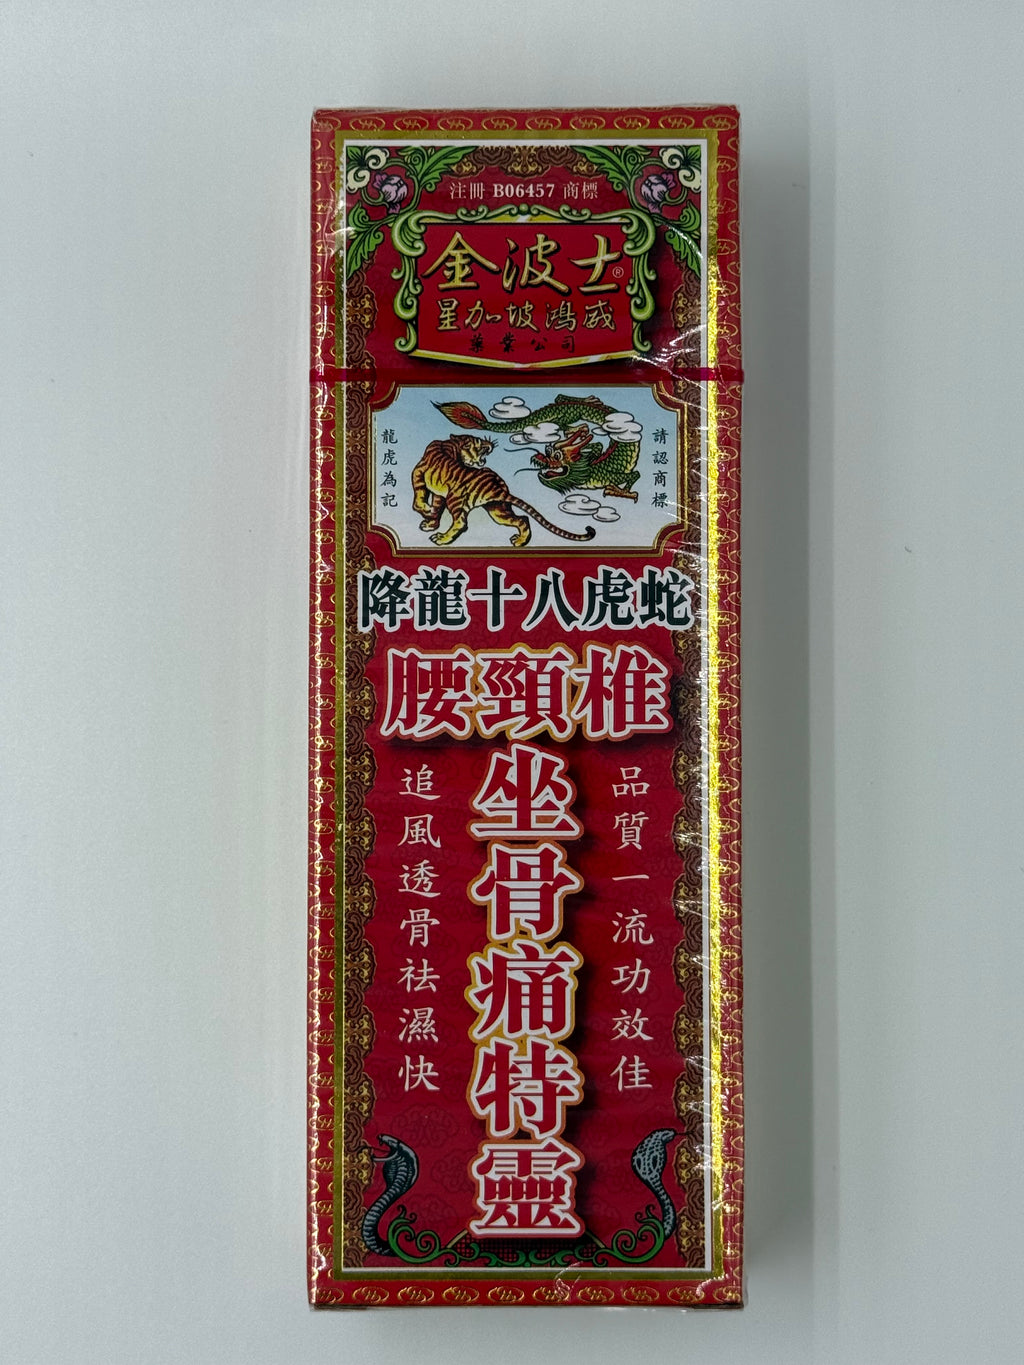 注冊 B06457 商標
金波士®
星加坡鴻威
藥業公司
請認商標
龍虎為記
降龍十八虎蛇
腰頸椎
坐骨痛特靈
品質一流功效佳
追風透骨祛濕快